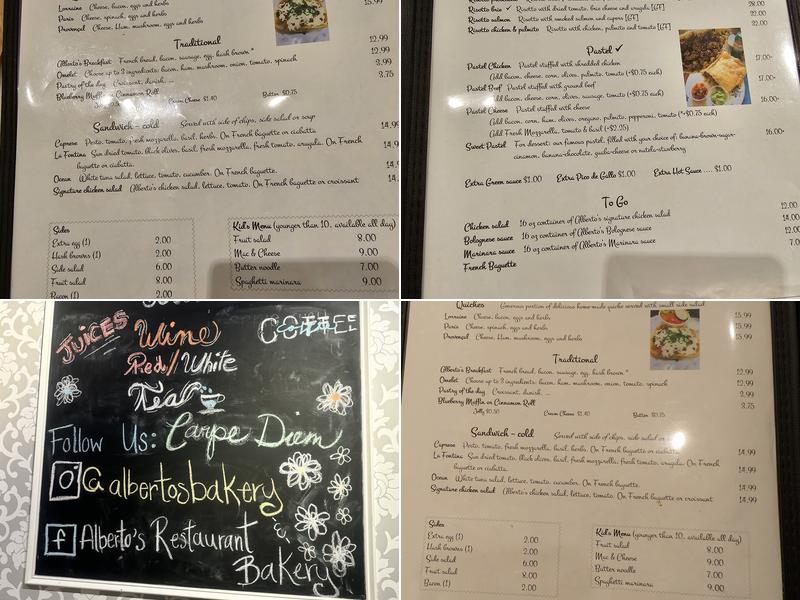 15.99
Lorraine Cheese, bacon, eggs and herbs
Paris Cheese, spinach, eggs and herbs
Provençal Cheese, Ham, mushroom, eggs and herbs
Traditional
Alberto's Breakfast French bread, bacon, sausage, egg, hash brown * 12.99
Omelet Choose up to 3 ingredients: bacon, ham, mushroom, onion, tomato, spinach 12.99
Pastry of the day Croissant, danish, ... 3.99
Blueberry Muffin or Cinnamon Roll 3.75
Jelly $0.50 Cream Cheese $1.40 Butter $0.75
Sandwich - cold Served with side of chips, side salad or soup
Caprese Pesto, tomato, fresh mozzarella, basil, herbs. On French baguette or ciabatta. 14.9
La Fontina Sun dried tomato, black olives, basil, fresh mozzarella, fresh tomato, arugula. On French 14.9
baguette or ciabatta.
Ocean White tuna salad, lettuce, tomato, cucumber. On French baguette. 14.
Signature chicken salad Alberto's chicken salad, lettuce, tomato. On French baguette or croissant 14.
Sides
Extra egg (1) 2.00
Hash browns (1) 2.00
Side salad 6.00
Fruit salad 8.00
Bacon (1) 2.00
Kid's Menu (younger than 10, available all day)
Fruit salad 8.00
Mac & Cheese 9.00
Butter noodle 7.00
Spaghetti marinara 9.00
28.00
Risotto brie ✓ Risotto with dried tomato, brie cheese and arugula [GF] 22.00
Risotto salmon Risotto with smoked salmon and capers [GF] 32.00
Risotto chicken & palmito Risotto with chicken, palmito and tomato [GF] 22.00
Pastel ✓
Pastel Chicken Pastel stuffed with shredded chicken 17.00
Add bacon, cheese, corn, olives, palmito, tomato (+$0.75 each)
Pastel Beef Pastel stuffed with ground beef 17.00
Add bacon, cheese, corn, olives, sausage, tomato (+$0.75 each)
Pastel Cheese Pastel stuffed with cheese 16.00
Add bacon, corn, ham, olives, oregano, palmito, pepperoni, tomato (+$0.75 each)
Add Fresh Mozzarella, tomato & basil (+$2.25)
Sweet Pastel For dessert: our famous pastel, filled with your choice of: banana-brown-sugar- 16.00
cinnamon, banana-chocolate, guaba-cheese or nutela-strawberry
Extra Green sauce $1.00 Extra Pico de Gallo $1.00 Extra Hot Sauce .... $1.00
To Go
Chicken salad 16 oz container of Alberto's signature chicken salad 12.00
Bolognese sauce 16 oz container of Alberto's Bolognese sauce 14.00
Marinara sauce 16 oz container of Alberto's Marinara sauce 12.00
French Baguette 7.0
JUICES
Wine
COFFEE
Red/White
Tea
Follow Us: Carpe Diem
@albertosbakery
f Alberto's Restaurant
& Bakery
Quiches Generous portion of delicious home-made quiche served with small side salad
Lorraine Cheese, bacon, eggs and herbs 15.99
Paris Cheese, spinach, eggs and herbs 15.99
Provençal Cheese, Ham, mushroom, eggs and herbs 15.99
Traditional
Alberto's Breakfast French bread, bacon, sausage, egg, hash brown * 12.99
Omelet Choose up to 3 ingredients: bacon, ham, mushroom, onion, tomato, spinach 12.99
Pastry of the day Croissant, danish, ... 3.99
Blueberry Muffin or Cinnamon Roll 3.75
Jelly $0.50 Cream Cheese $1.40 Butter $0.75
Sandwich - cold Served with side of chips, side salad or
Caprese Pesto, tomato, fresh mozzarella, basil, herbs. On French baguette or ciabatta. 14.99
La Fontina Sun dried tomato, black olives, basil, fresh mozzarella, fresh tomato, arugula. On French 14.99
baguette or ciabatta.
Ocean White tuna salad, lettuce, tomato, cucumber. On French baguette. 14.99
Signature chicken salad Alberto's chicken salad, lettuce, tomato. On French baguette or croissant 14.99
Sides
Extra egg (1) 2.00
Hash browns (1) 2.00
Side salad 6.00
Fruit salad 8.00
Bacon (1) 2.00
Kid's Menu (younger than 10, available all day)
Fruit salad 8.00
Mac & Cheese 9.00
Butter noodle 7.00
Spaghetti marinara 9.00